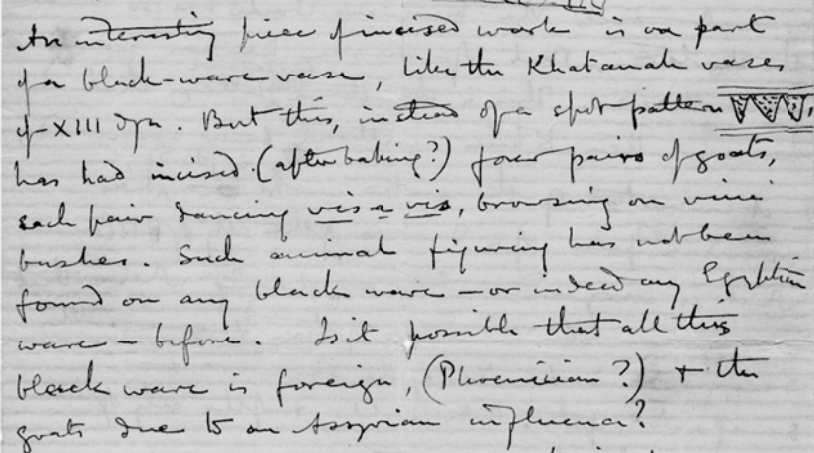 An interesting piece of incised work is on part
of a black-ware vase, like the Khatanah vases
of XIII dyn. But this, instead of a spot pattern
has had incised (after baking?) four pairs of goats,
each pair dancing vis a vis, browsing on vine
bushes. Such animal figuring has not been
found on any black ware – or indeed any Egyptian
ware – before. Is it possible that all this
black ware is foreign, (Phoenician?) + the
goats due to an Assyrian influence?